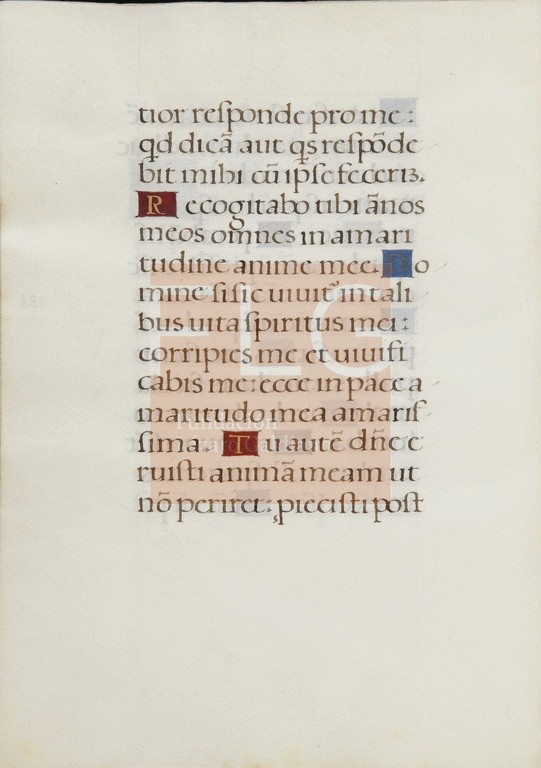 tior reſponde pro me :
qd dicã aut qs reſpõde
bit mihi cũ ipſe feceriʒ.
Recogitabo tibi ãnos
meos omnes in amari
tudine anime mee. Do
mine ſi ſic uiuit᷑ in tali
bus uita ſpiritus mei :
corripies me et uiuifi
cabis me : ecce in pace a
maritudo mea amariſ
ſima. Tu autẽ dñe e
ruiſti animã meam ut
nõ periret : ꝓieciſti poſt
FLG
Fundación
Lázaro Galdiano